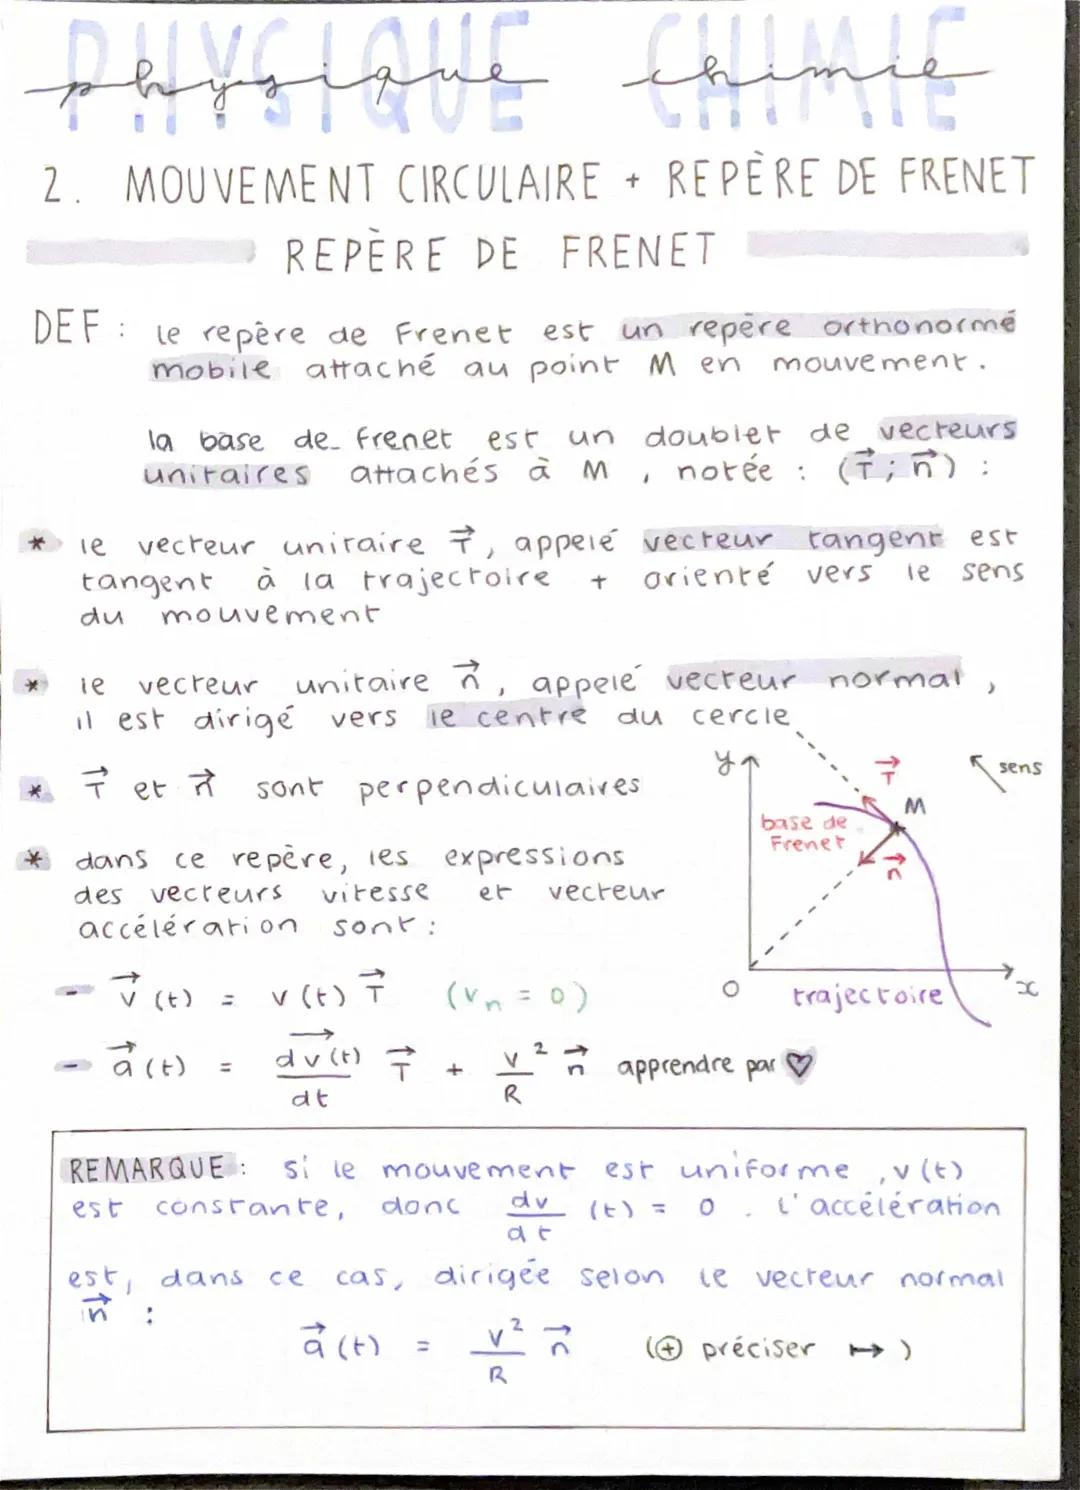 PHYSIQUE CHIMIE
physique chimie
2. MOUVEMENT CIRCULAIRE + REPÈRE DE FRENET
REPÈRE DE FRENET
DEF : le repère de Frenet est un repère orthonormé
mobile attaché au point M en mouvement.
la base de frenet est un doublet de vecteurs
unitaires attachés à M, notée : (T⃗ ; n⃗) :
* le vecteur unitaire T⃗, appelé vecteur tangent est
tangent à la trajectoire + orienté vers le sens
du mouvement
* le vecteur unitaire n⃗, appelé vecteur normal,
il est dirigé vers le centre du cercle
* T⃗ et n⃗ sont perpendiculaires
* dans ce repère, les expressions
des vecteurs vitesse et vecteur
accélération sont :
y
T⃗
sens
M
base de
Frenet
n⃗
O
x
trajectoire
- v⃗(t) = v(t) T⃗ (vₙ = 0)
- a⃗(t) = dv(t)⃗/dt T⃗ + v²/R n⃗ apprendre par ♡
REMARQUE : si le mouvement est uniforme, v(t)
est constante, donc dv/dt (t) = 0. l'accélération
est, dans ce cas, dirigée selon le vecteur normal
n⃗ :
a⃗(t) = v²/R n⃗ (⊕ préciser ↦)